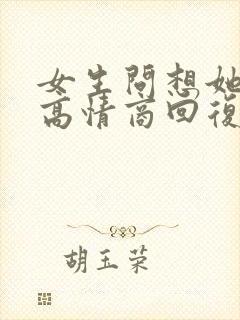 女生問想她
高情商回復
胡玉荣